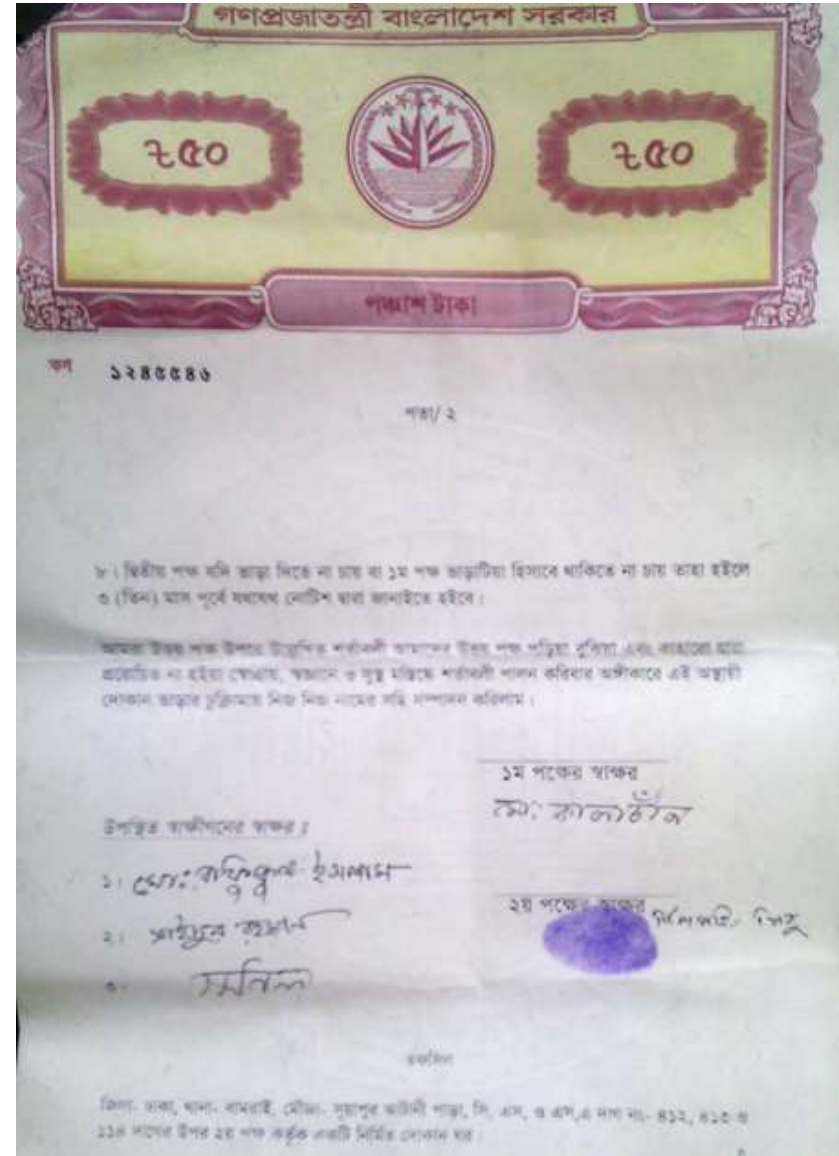 গণপ্রজাতন্ত্রী বাংলাদেশ সরকার
৳৫০ ৳৫০
পঞ্চাশ টাকা
কণ ১২৪৫৫৪৬
পাতা/ ২
৮। দ্বিতীয় পক্ষ যদি ভাড়া দিতে না চায় বা ১ম পক্ষ ভাড়াটিয়া হিসাবে থাকিতে না চায় তাহা হইলে
৩ (তিন) মাস পূর্বে যথাযথ নোটিশ দ্বারা জানাইতে হইবে।
আমরা উভয় পক্ষ উপরে উল্লেখিত শর্তাবলী আমাদের উভয় পক্ষ পড়িয়া বুঝিয়া এবং কাহারো দ্বারা
প্ররোচিত না হইয়া স্বেচ্ছায়, স্বজ্ঞানে ও সুস্থ মস্তিষ্কে শর্তাবলী পালন করিবার অঙ্গীকারে এই অস্থায়ী
দোকান ভাড়ার চুক্তিনামায় নিজ নিজ নামের সহি সম্পাদন করিলাম।
১ম পক্ষের স্বাক্ষর
মো: কালাচাঁন
উপস্থিত স্বাক্ষীগনের স্বাক্ষর ঃ
১। মোঃ রফিকুল ইসলাম
২।
২য় পক্ষের স্বাক্ষর
৩।
তফসিল
জিলা- ঢাকা, থানা- ধামরাই, মৌজা- সুয়াপুর পাড়া, সি, এস, ও এস,এ দাগ নং- ৪১২, ৪১৩ ও
১১৪ দাগের উপর ২য় পক্ষ কর্তৃক একটি নির্মিত দোকান ঘর।